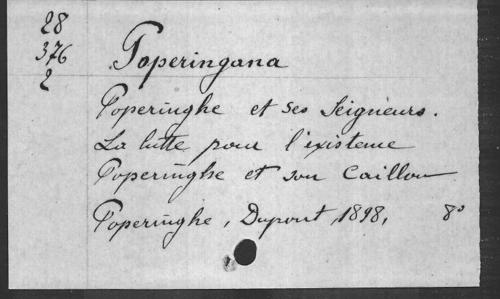 28
376
2
Poperingana
Poperinghe et ses Seigneurs.
La lutte pour l'existence
Poperinghe et son Caillou
Poperinghe, Dupont, 1898, 8°